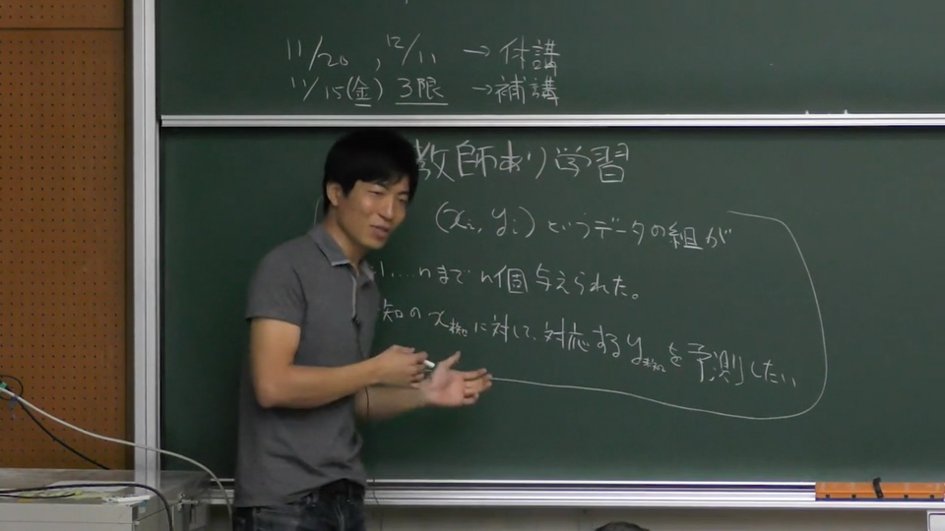 11/20, 12/11 →休講
11/15(金) 3限 →補講
教師あり学習
(xi, yi) というデータの組が
1,...,nまで n個与えられた。
知の x未知に対して、対応する y未知を予測したい